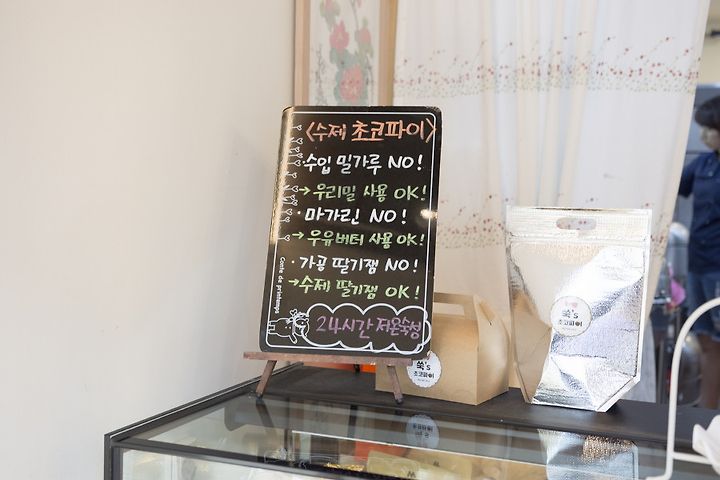 <수제 초코파이>
· 수입 밀가루 NO!
→ 우리밀 사용 OK!
· 마가린 NO!
→ 우유버터 사용 OK!
· 가공 딸기잼 NO!
→ 수제 딸기잼 OK!
24시간 저온숙성
Conte de printemps
쑥's
초코파이
쑥's
초코파이